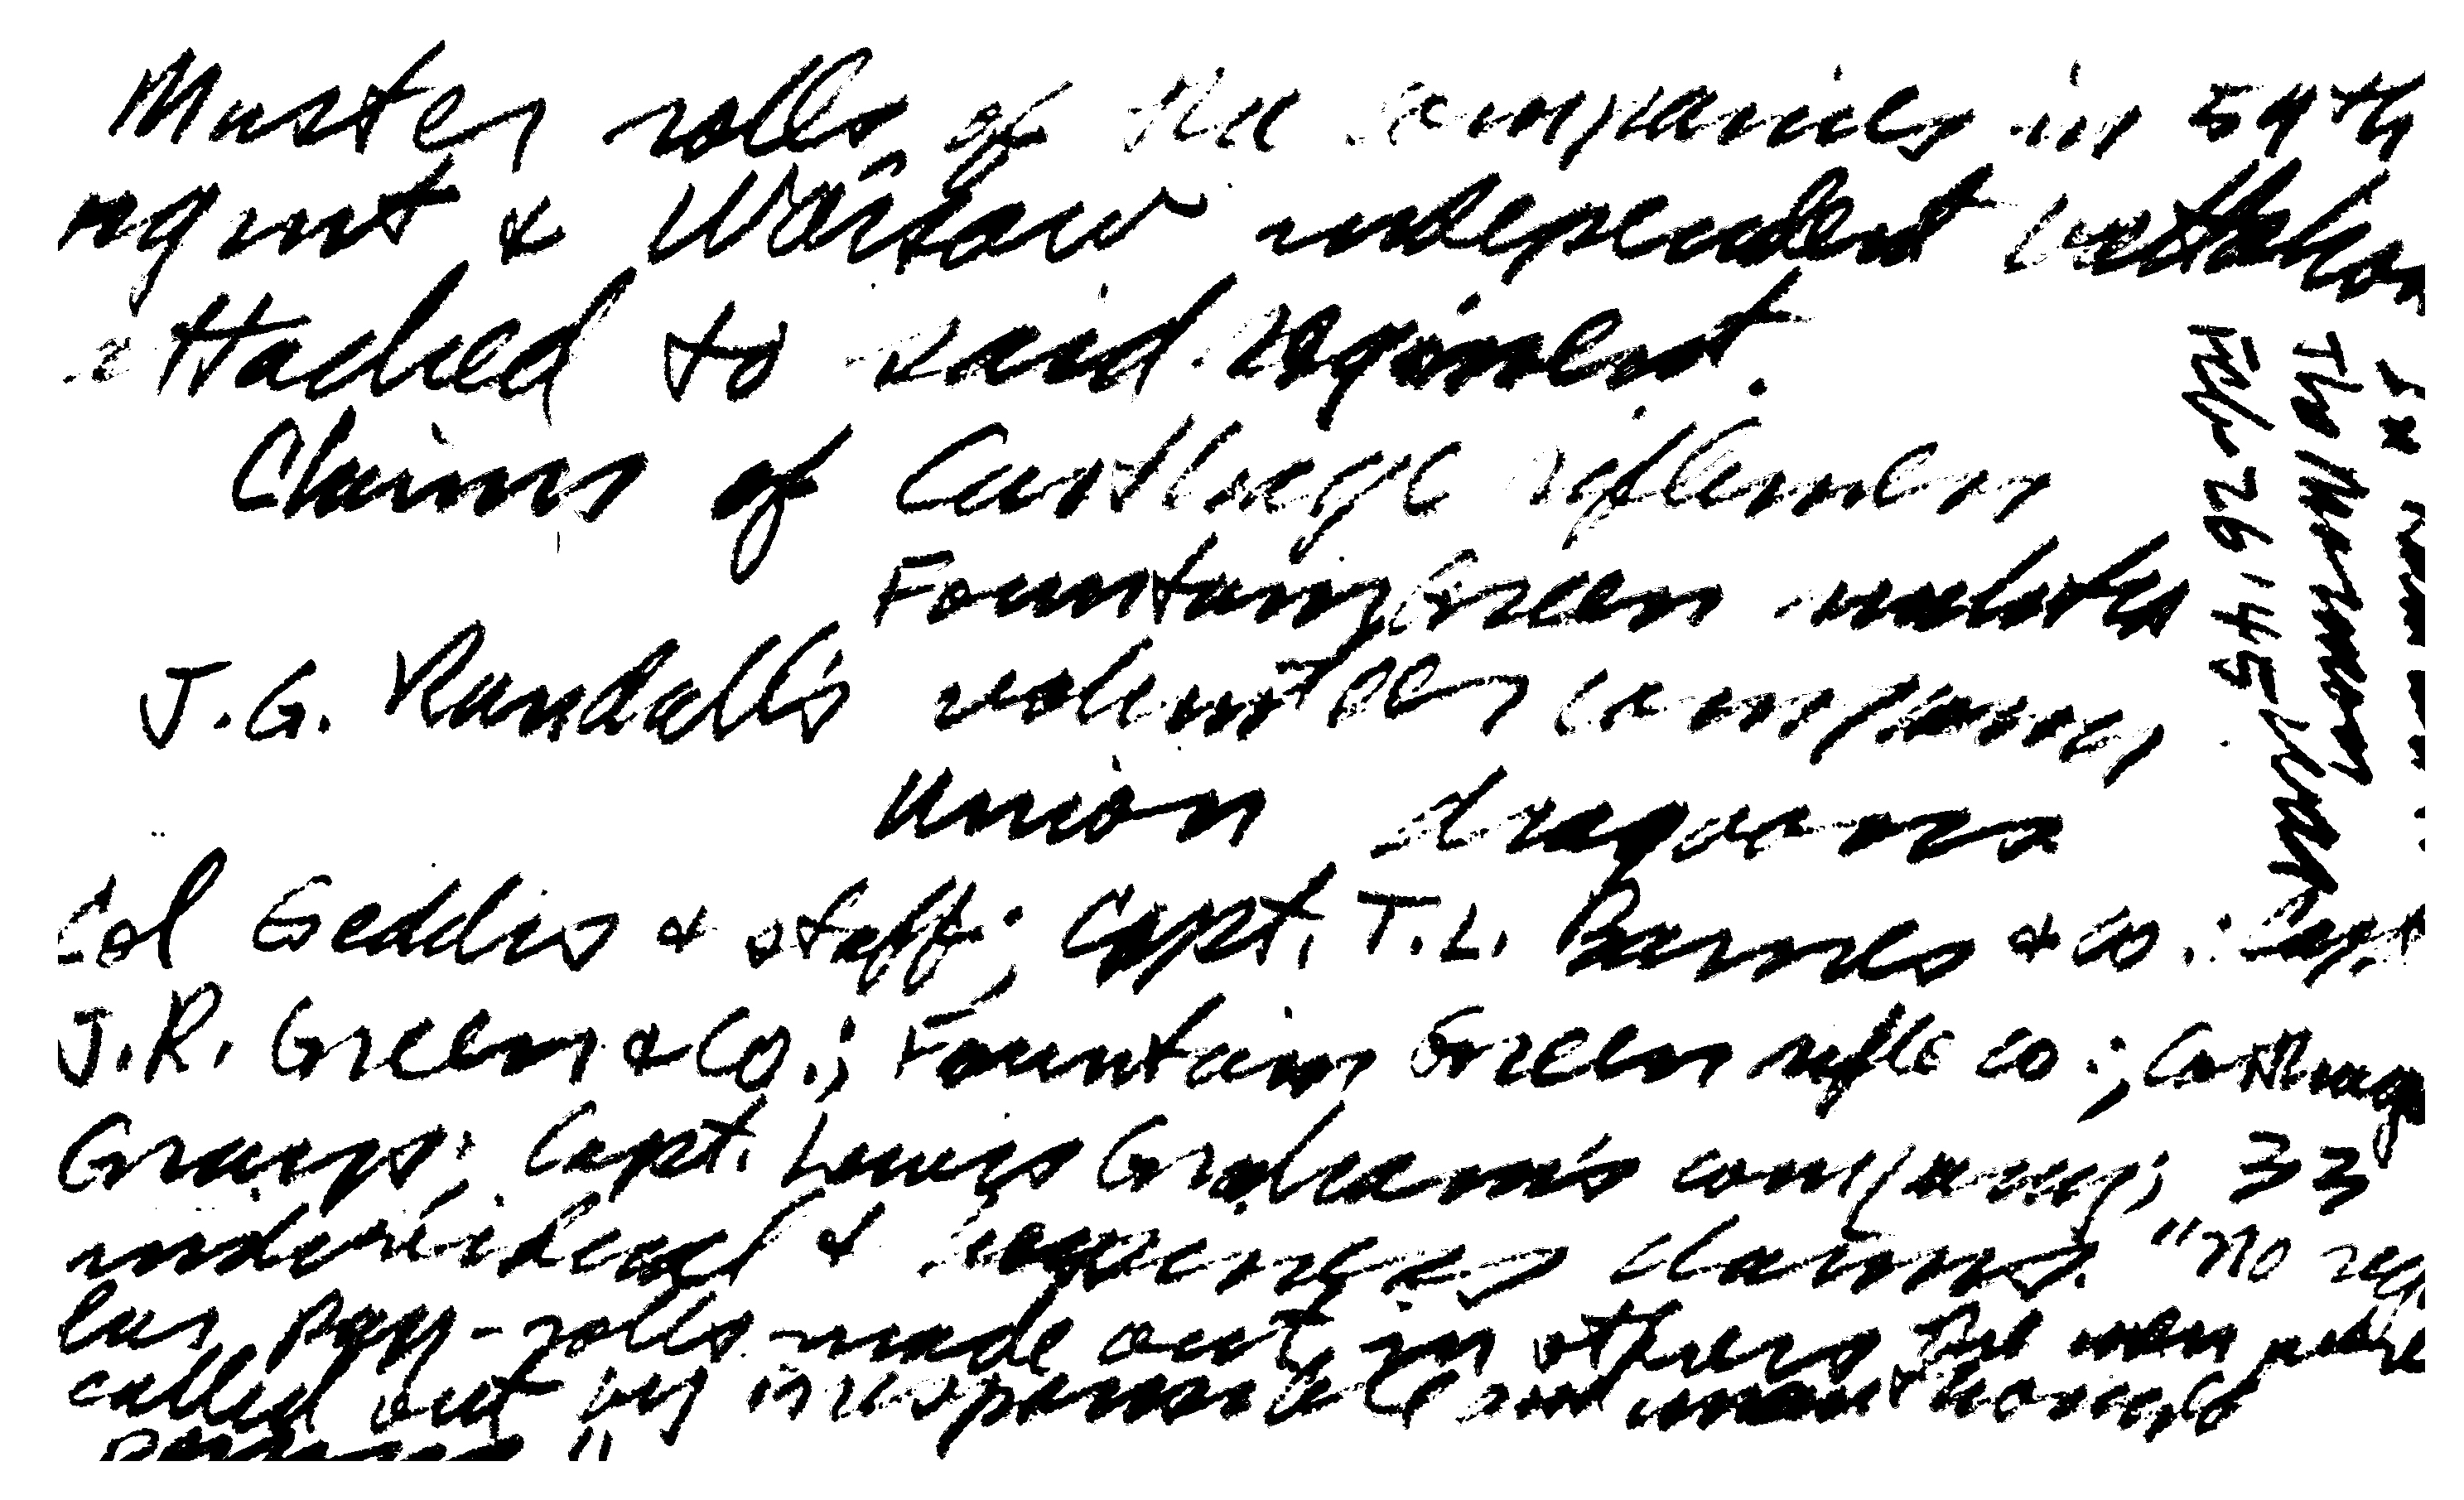 Muster rolls of the companies in 59th
regmt & Warsaw independent battalion
attached to said regiment.
Claims of Carthage riflemen
Fountain Green militia
J.G. Randall's volunteer company
Union dragoons
Col Geddis & staff; Capt. T.L. Barnes & co.; Capt
J.R. Green & Co.; Fountain Green rifle co.; Carthage
Grays; Capt. Louis Graham's company; 33
individual & claims. "no regu
lar pay-rolls made out in others the men were
called out by irresponsible and unauthorized
persons"
Feb 26 1845